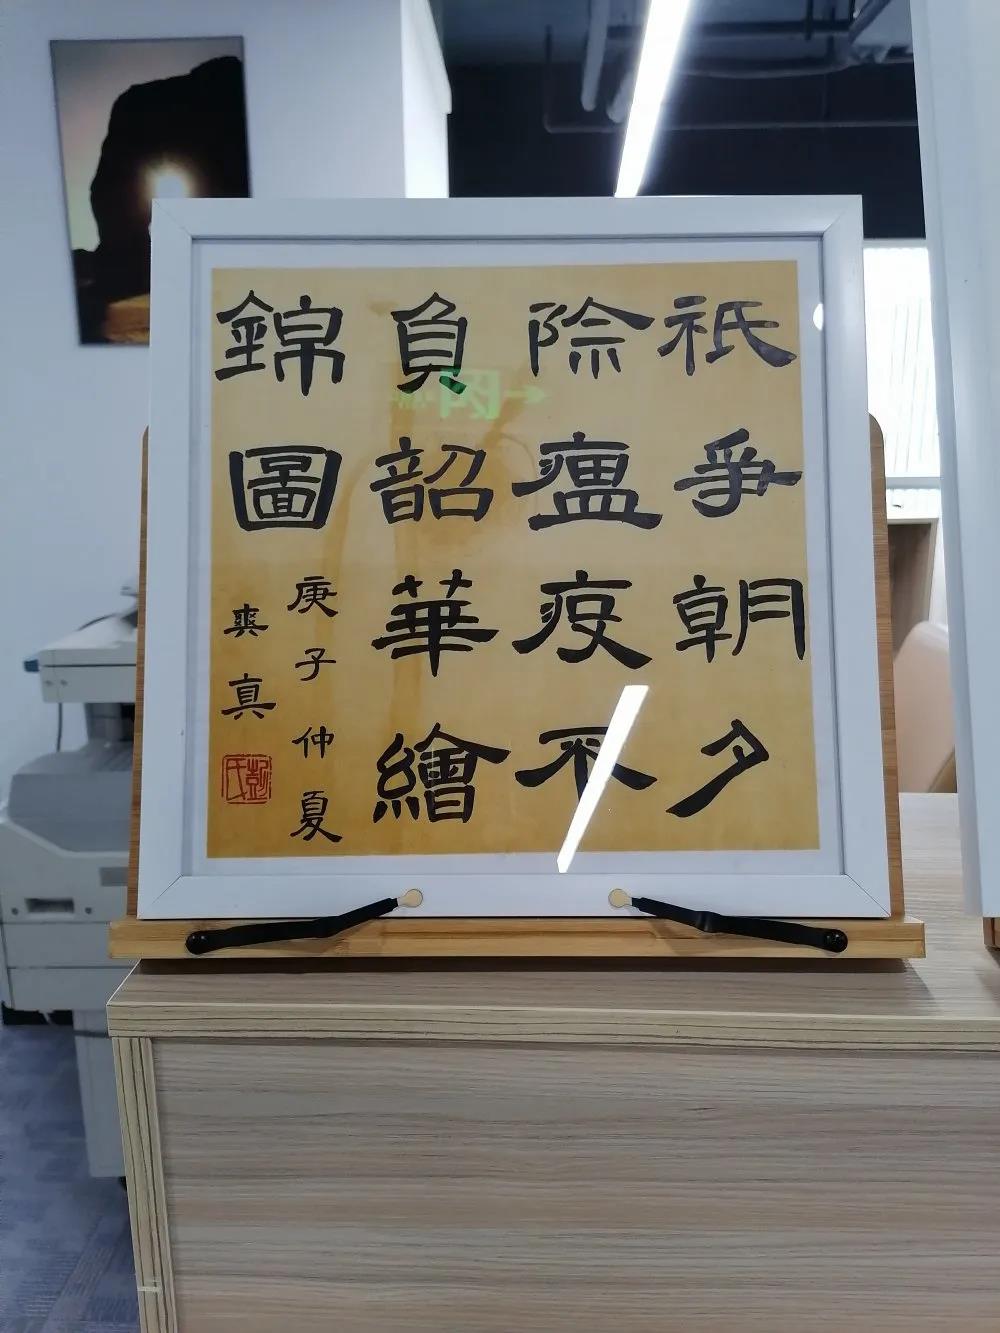 祇爭朝夕
除瘟疫不
負韶華繪
錦圖
庚子仲夏
爽真
彭氏